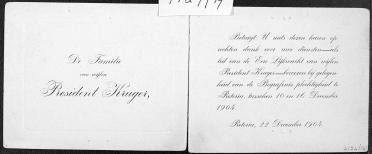 De Familie
van wijlen
President Kruger,
Betuigt U mits dezen haren op-
rechten dank voor uwe diensten—als
lid van de Eere Lijfwacht van wijlen
President Kruger—bewezen bij gelegen-
heid van de Begrafenis plechtigheid te
Pretoria, tusschen 10 en 16 December
1904.
Pretoria, 22 December 1904.